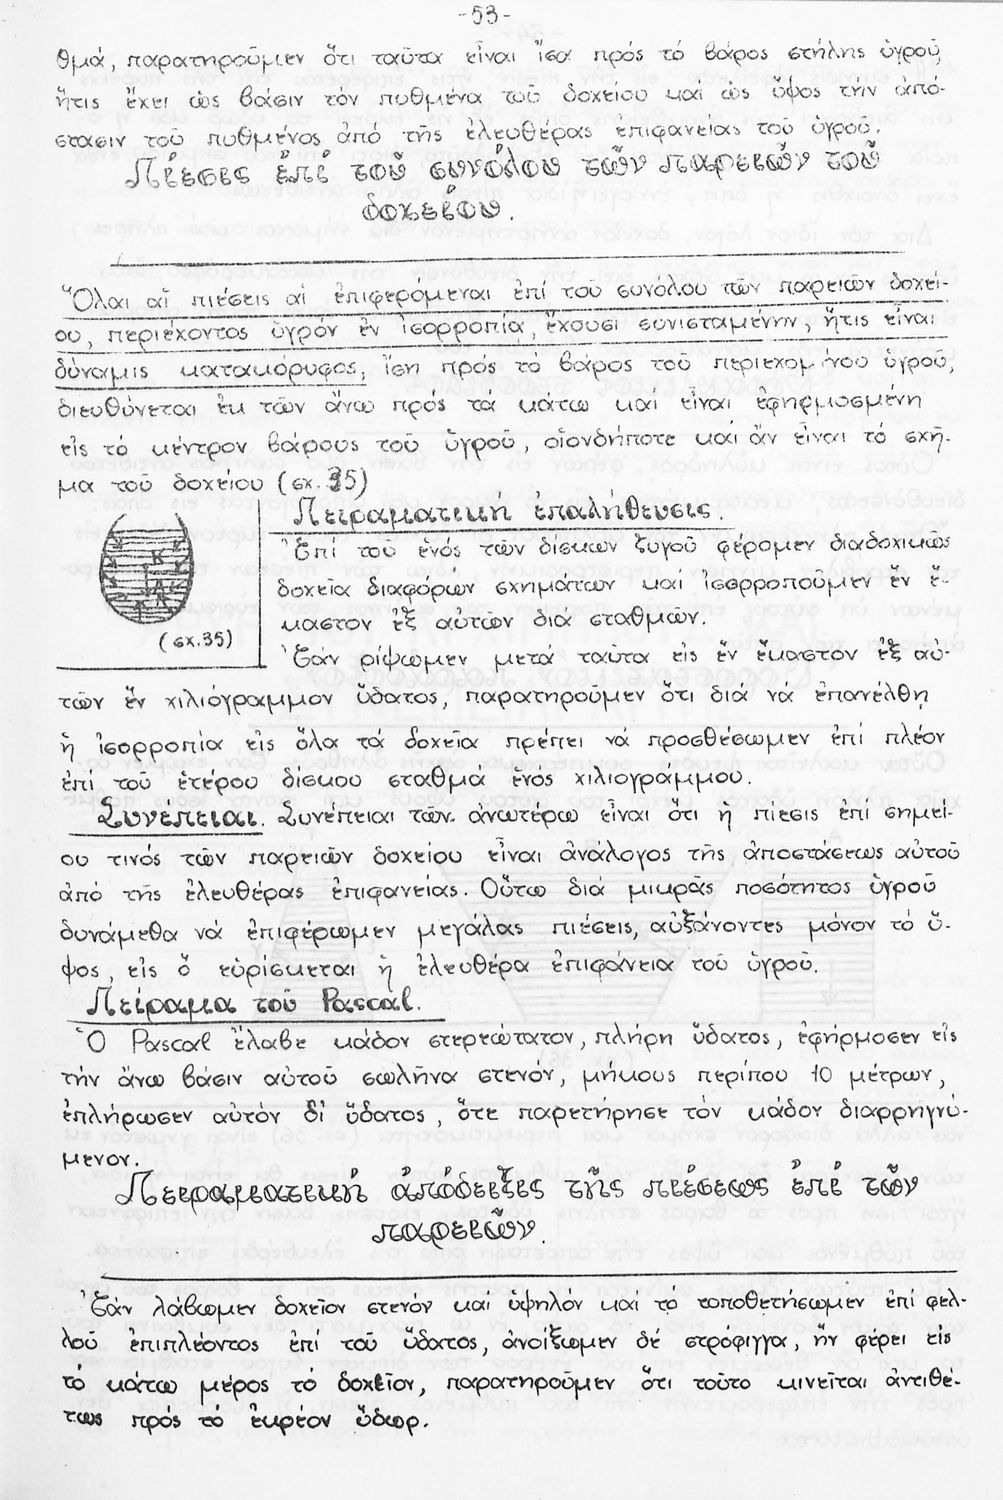 -53-
θμά, παρατηροῦμεν ὅτι ταῦτα εἶναι ἴσα πρός τό βάρος στήλης ὑγροῦ,
ἥτις ἔχει ὡς βάσιν τόν πυθμένα τοῦ δοχείου καί ὡς ὕψος τήν ἀπό-
στασιν τοῦ πυθμένος ἀπό τῆς ἐλευθέρας ἐπιφανείας τοῦ ὑγροῦ.
Πίεσις ἐπί τοῦ συνόλου τῶν παρειῶν τοῦ
δοχείου.
Ὅλαι αἱ πιέσεις αἱ ἐπιφερόμεναι ἐπί τοῦ συνόλου τῶν παρειῶν δοχεί-
ου, περιέχοντος ὑγρόν ἐν ἰσορροπίᾳ, ἔχουσι συνισταμένην, ἥτις εἶναι
δύναμις κατακόρυφος, ἴση πρός τό βάρος τοῦ περιεχομένου ὑγροῦ,
διευθύνεται ἐκ τῶν ἄνω πρός τά κάτω καί εἶναι ἐφηρμοσμένη
εἰς τό κέντρον βάρους τοῦ ὑγροῦ, οἱονδήποτε καί ἄν εἶναι τό σχῆ-
μα τοῦ δοχείου (σχ. 35)
Πειραματική ἐπαλήθευσις.
Ἐπί του ἑνός τῶν δίσκων ζυγοῦ φέρομεν διαδοχικῶς
δοχεῖα διαφόρων σχημάτων καί ἰσορροποῦμεν ἕν ἕ-
καστον ἐξ αὐτῶν διά σταθμῶν.
Κ
Α Κ
Κ Κ
(σχ.35)
Ἐάν ρίψωμεν μετά ταῦτα εἰς ἕν ἕκαστον ἐξ αὐ-
τῶν ἕν χιλιόγραμμον ὕδατος, παρατηροῦμεν ὅτι διά νά ἐπανέλθῃ
ἡ ἰσορροπία εἰς ὅλα τά δοχεῖα πρέπει νά προσθέσωμεν ἐπί πλέον
ἐπί τοῦ ἑτέρου δίσκου σταθμα ἑνός χιλιογράμμου.
Συνέπειαι. Συνέπειαι τῶν ἀνωτέρω εἶναι ὅτι ἡ πίεσις ἐπί σημεί-
ου τινός τῶν παρειῶν δοχείου εἶναι ἀνάλογος τῆς ἀποστάσεως αὐτοῦ
ἀπό τῆς ἐλευθέρας ἐπιφανείας. Οὕτω διά μικρᾶς ποσότητος ὑγροῦ
δυνάμεθα νά ἐπιφέρωμεν μεγάλας πιέσεις, αὐξάνοντες μόνον τό ὕ-
ψος, εἰς ὅ εὑρίσκεται ἡ ἐλευθέρα ἐπιφάνεια τοῦ ὑγροῦ.
Πείραμα τοῦ Pascal.
Ὁ Pascal ἔλαβε κάδον στερεώτατον, πλήρη ὕδατος, ἐφήρμοσεν εἰς
τήν ἄνω βάσιν αὐτοῦ σωλῆνα στενόν, μήκους περίπου 10 μέτρων,
ἐπλήρωσεν αὐτόν δι' ὕδατος, ὅτε παρετήρησε τόν κάδον διαρρηγνύ-
μενον.
Πειραματική ἀπόδειξις τῆς πιέσεως ἐπί τῶν
παρειῶν.
Ἐάν λάβωμεν δοχεῖον στενόν καί ὑψηλόν καί τό τοποθετήσωμεν ἐπί φελ-
λοῦ ἐπιπλέοντος ἐπί τοῦ ὕδατος, ἀνοίξωμεν δέ στρόφιγγα, ἥν φέρει εἰς
τό κάτω μέρος τό δοχεῖον, παρατηροῦμεν ὅτι τοῦτο κινεῖται ἀντιθέ-
τως πρός τό ἐκρέον ὕδωρ.